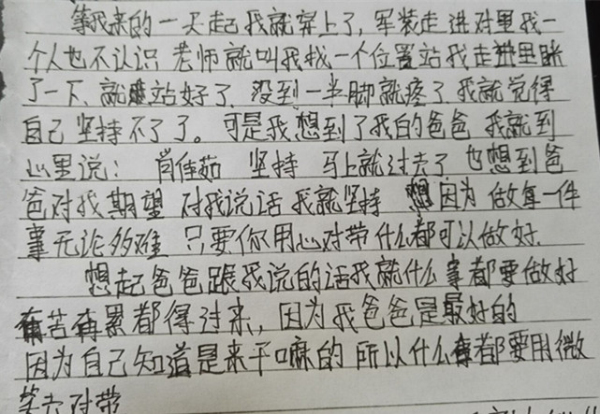 等我来的一天起我就穿上了,军装走进对里我一
个人也不认识 老师就叫我找一个位置站我走进里眯
了一下、就站好了、没到一半脚就疼了、我就觉得
自己坚持不了了。可是我想到了我的爸爸 我就到
心里说: 肖佳茹 坚持 马上就过去了 也想到爸
爸对我期望 对我说话 我就坚持 因为 做每一件
事无论多难 只要你用心对带什么都可以做好.
想起爸爸跟我说的话我就什么事都要做好
有苦有累都得过来,因为我爸爸是最好的
因为自己知道是来干嘛的 所以什么事都要用微
笑去对带